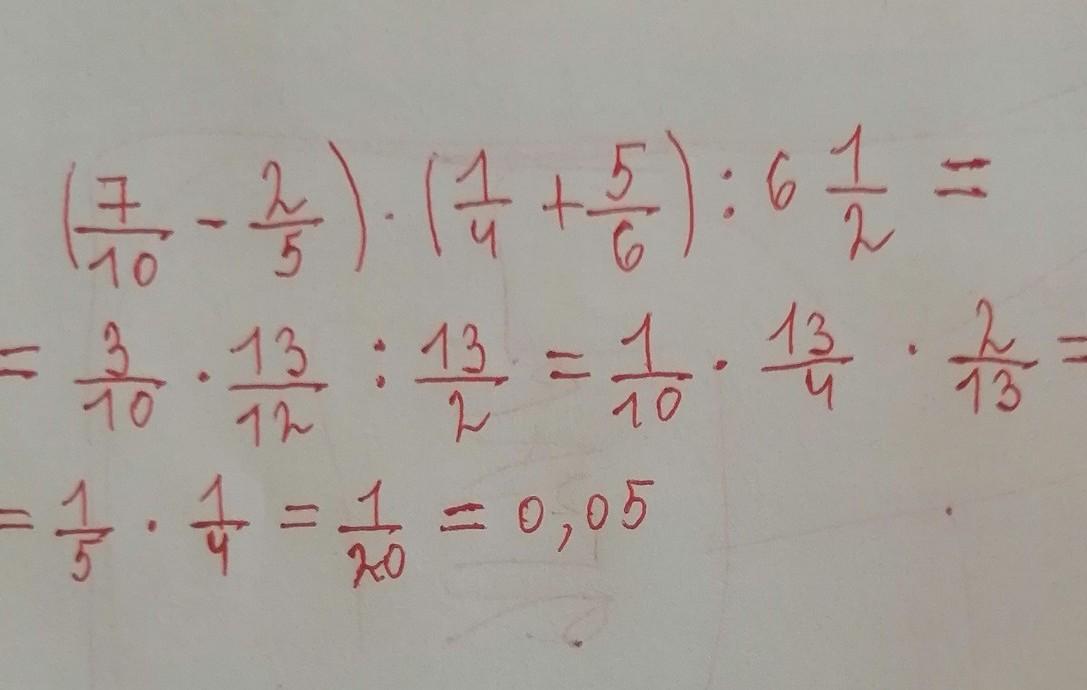 (7/10 - 2/5) · (1/4 + 5/6) : 6 1/2 =
= 3/10 · 13/12 : 13/2 = 1/10 · 13/4 · 2/13 =
= 1/5 · 1/4 = 1/20 = 0,05